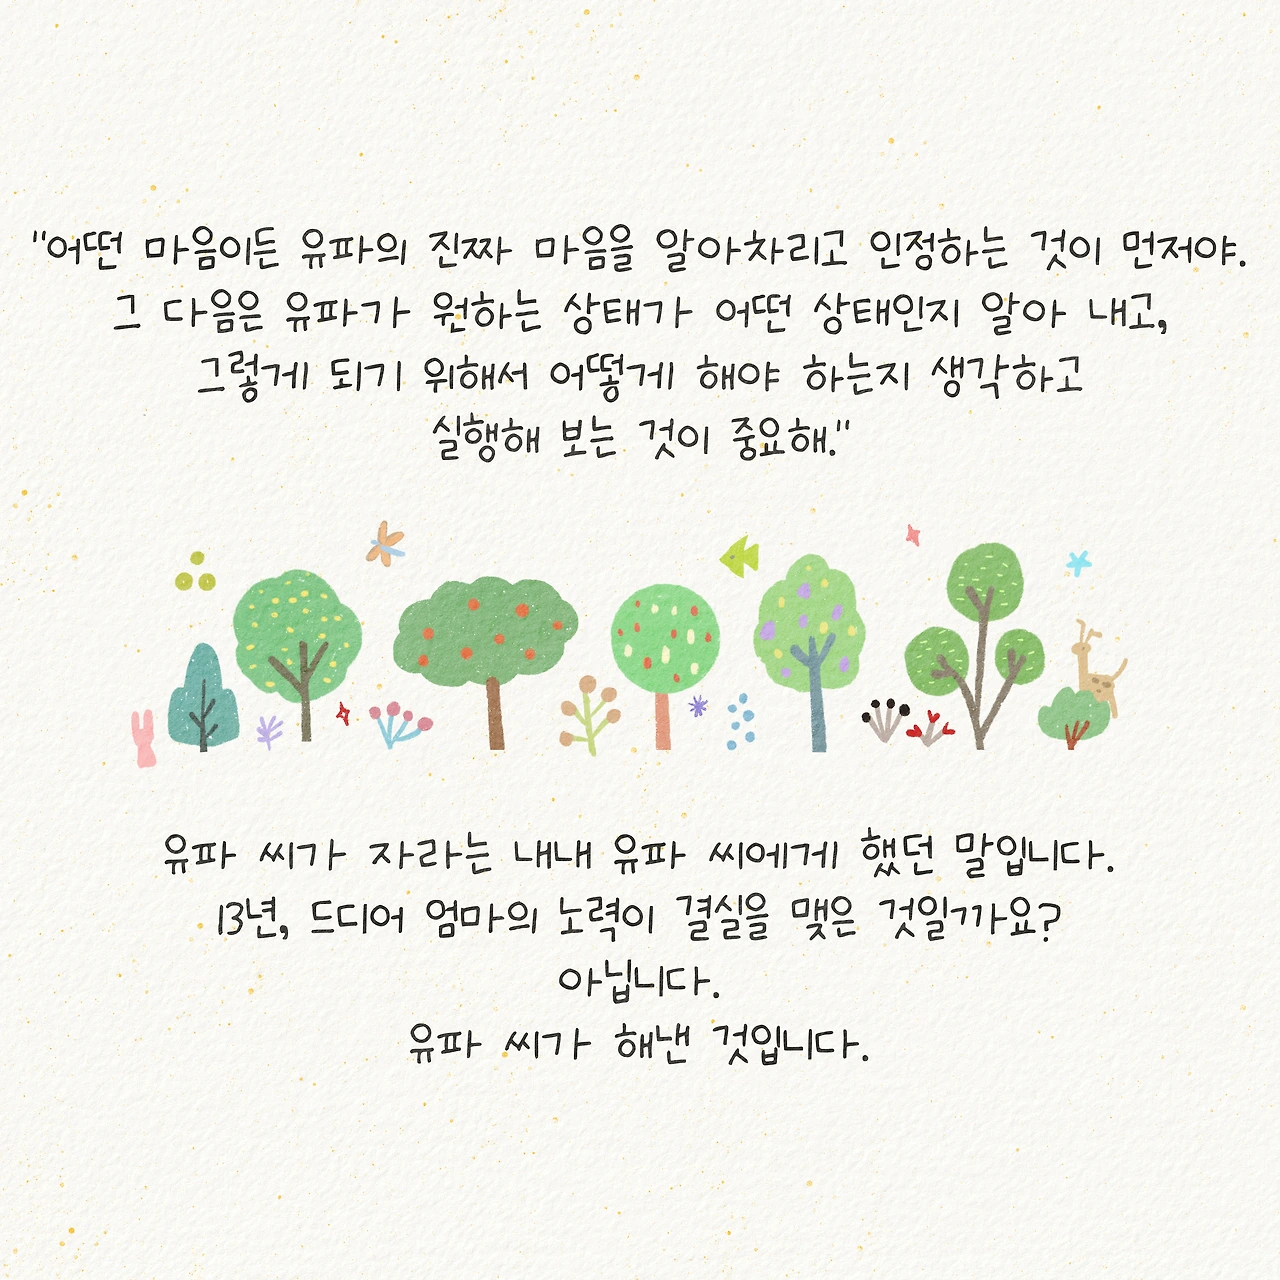 "어떤 마음이든 유파의 진짜 마음을 알아차리고 인정하는 것이 먼저야.
그 다음은 유파가 원하는 상태가 어떤 상태인지 알아 내고,
그렇게 되기 위해서 어떻게 해야 하는지 생각하고
실행해 보는 것이 중요해."
유파 씨가 자라는 내내 유파 씨에게 했던 말입니다.
13년, 드디어 엄마의 노력이 결실을 맺은 것일까요?
아닙니다.
유파 씨가 해낸 것입니다.